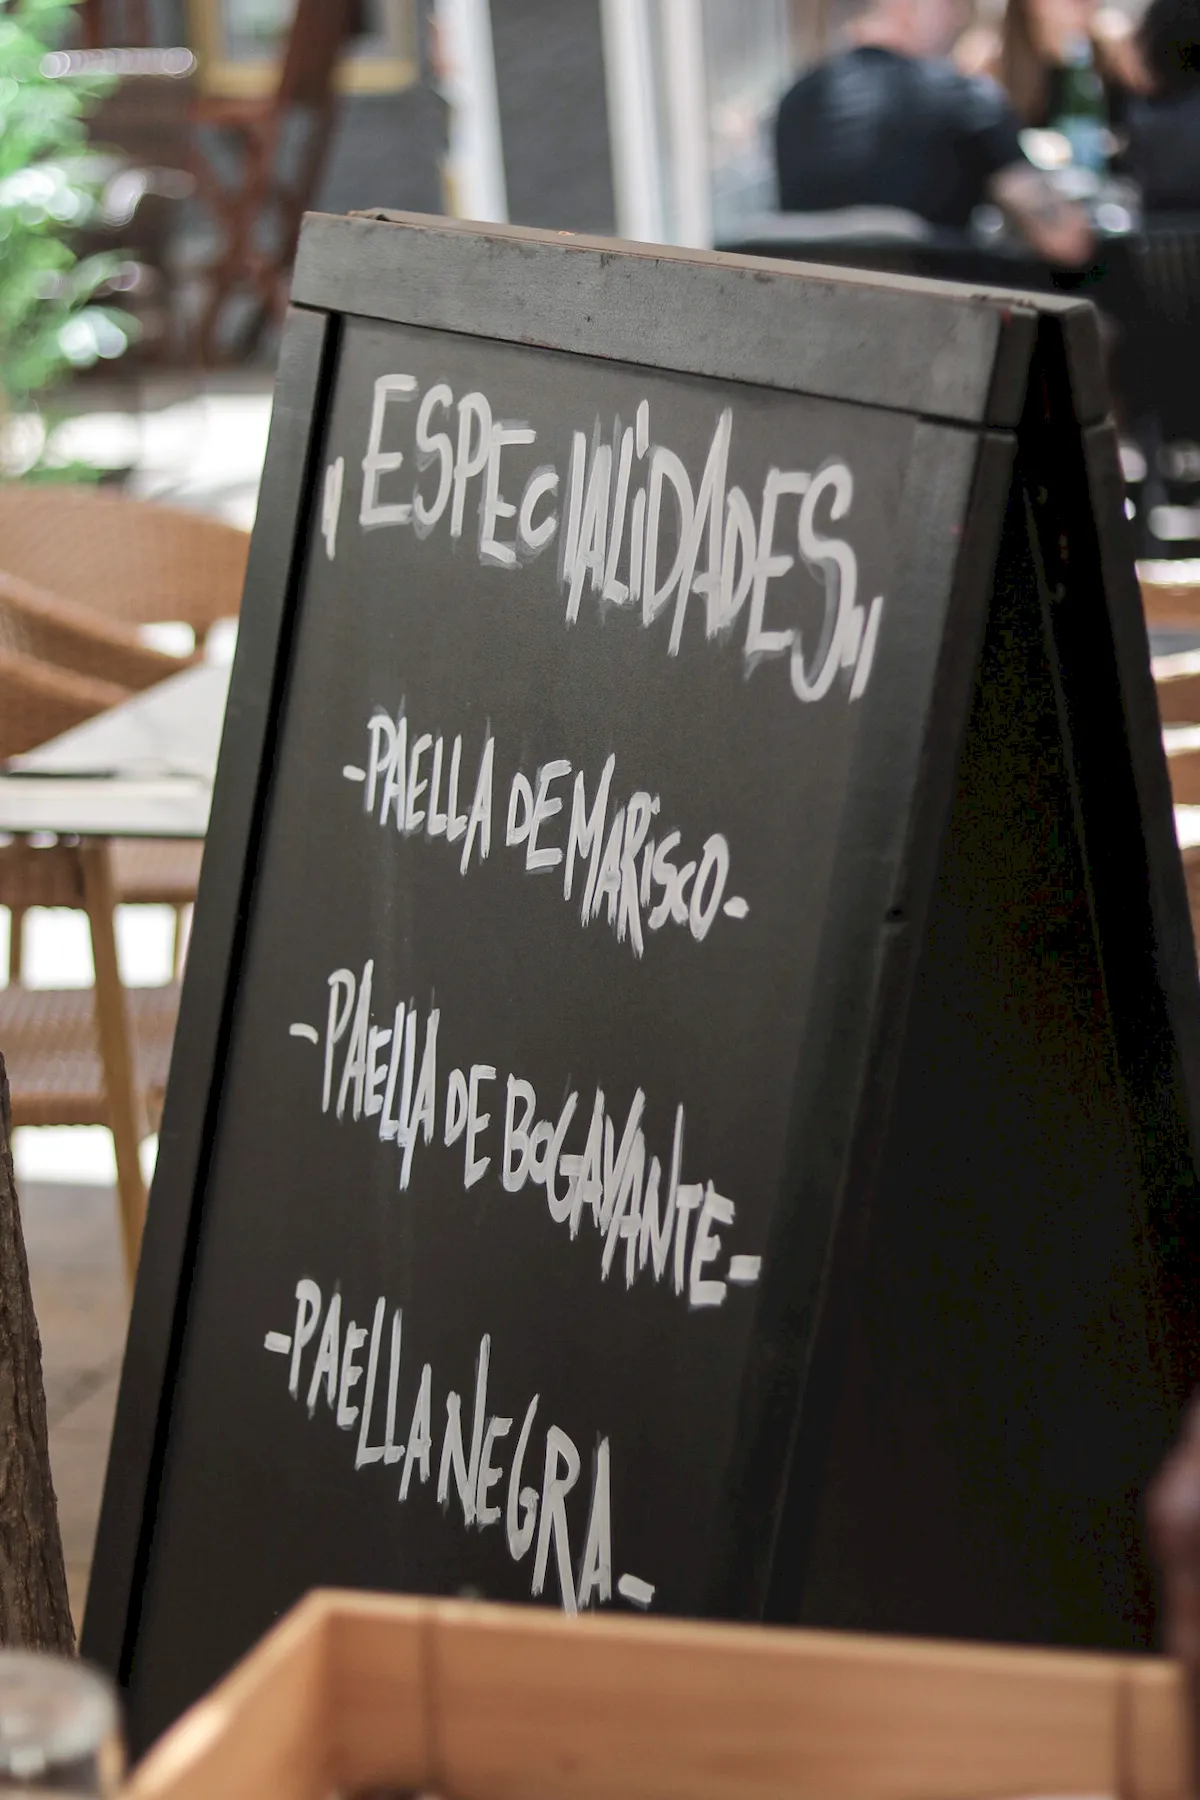 "ESPECIALiDADES"
-PAELLA DE MARiSCO-
-PAELLA DE BOGAVANTE-
-PAELLA NEGRA-